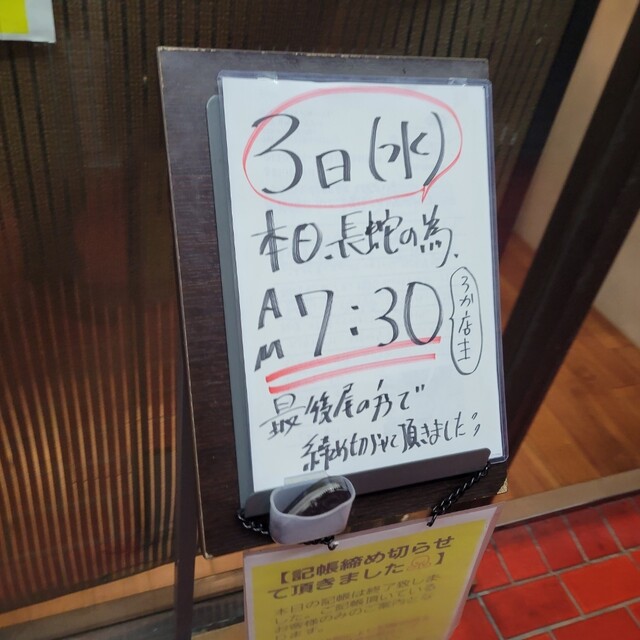 3日(水)
本日、長蛇の為、
AM 7:30
最後尾の方で
締め切らせて頂きました"
【記帳締め切らせ
て頂きました 】
本日の記帳は終了致しま